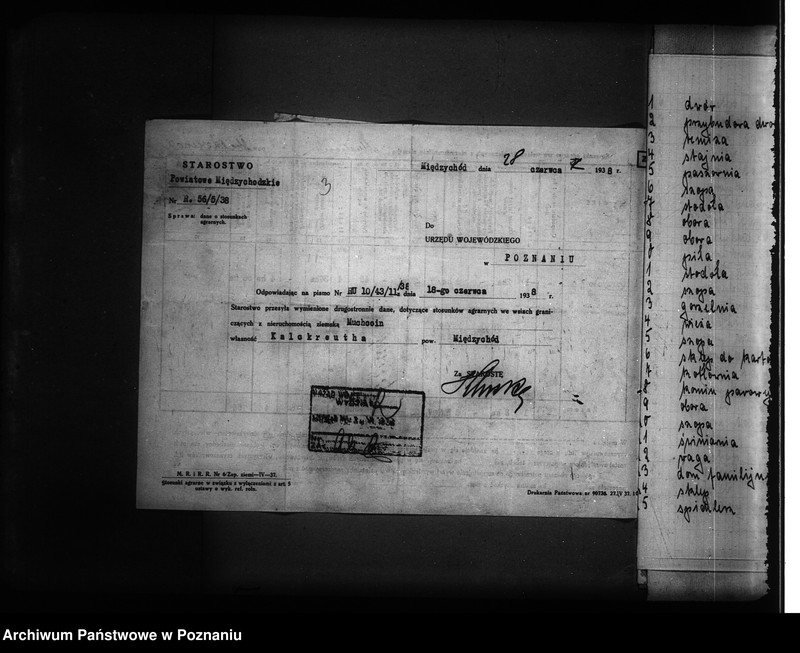 STAROSTWO
Powiatowe Międzychodzkie
Nr R. 56/5/38
Sprawa: dane o stosunkach
agrarnych.
3
Międzychód dnia 28 czerwca 1938 r.
Do
URZĘDU WOJEWÓDZKIEGO
w POZNANIU
Odpowiadając na pismo Nr 10/43/11/38 z dnia 18-go czerwca 1938 r.
Starostwo przesyła wymienione drugostronnie dane, dotyczące stosunków agrarnych we wsiach grani-
czących z nieruchomością ziemską Muchocin
własność Kalckreutha pow. Międzychód
Za STAROSTĘ
M. R. i R. R. Nr 6/Zap. ziemi—IV—37.
Stosunki agrarne w związku z wyłączeniami z art. 5
ustawy o wyk. ref. roln.
Drukarnia Państwowa nr 90236. 27.IV 37.
1 dwór
2 przybudowa
3 remiza
4 stajnia
5 paszarnia
6 szopa
7 stodoła
8 obora
9 obora
piła
1 stodoła
2 szopa
3 gorzelnia
4
5 szopa
6 sklep do
7 kotłownia
8 komin parowy
9 obora
szopa
1
2 waga
3 dom familijny
4 sklep
5 spichlerz
Archiwum Państwowe w Poznaniu